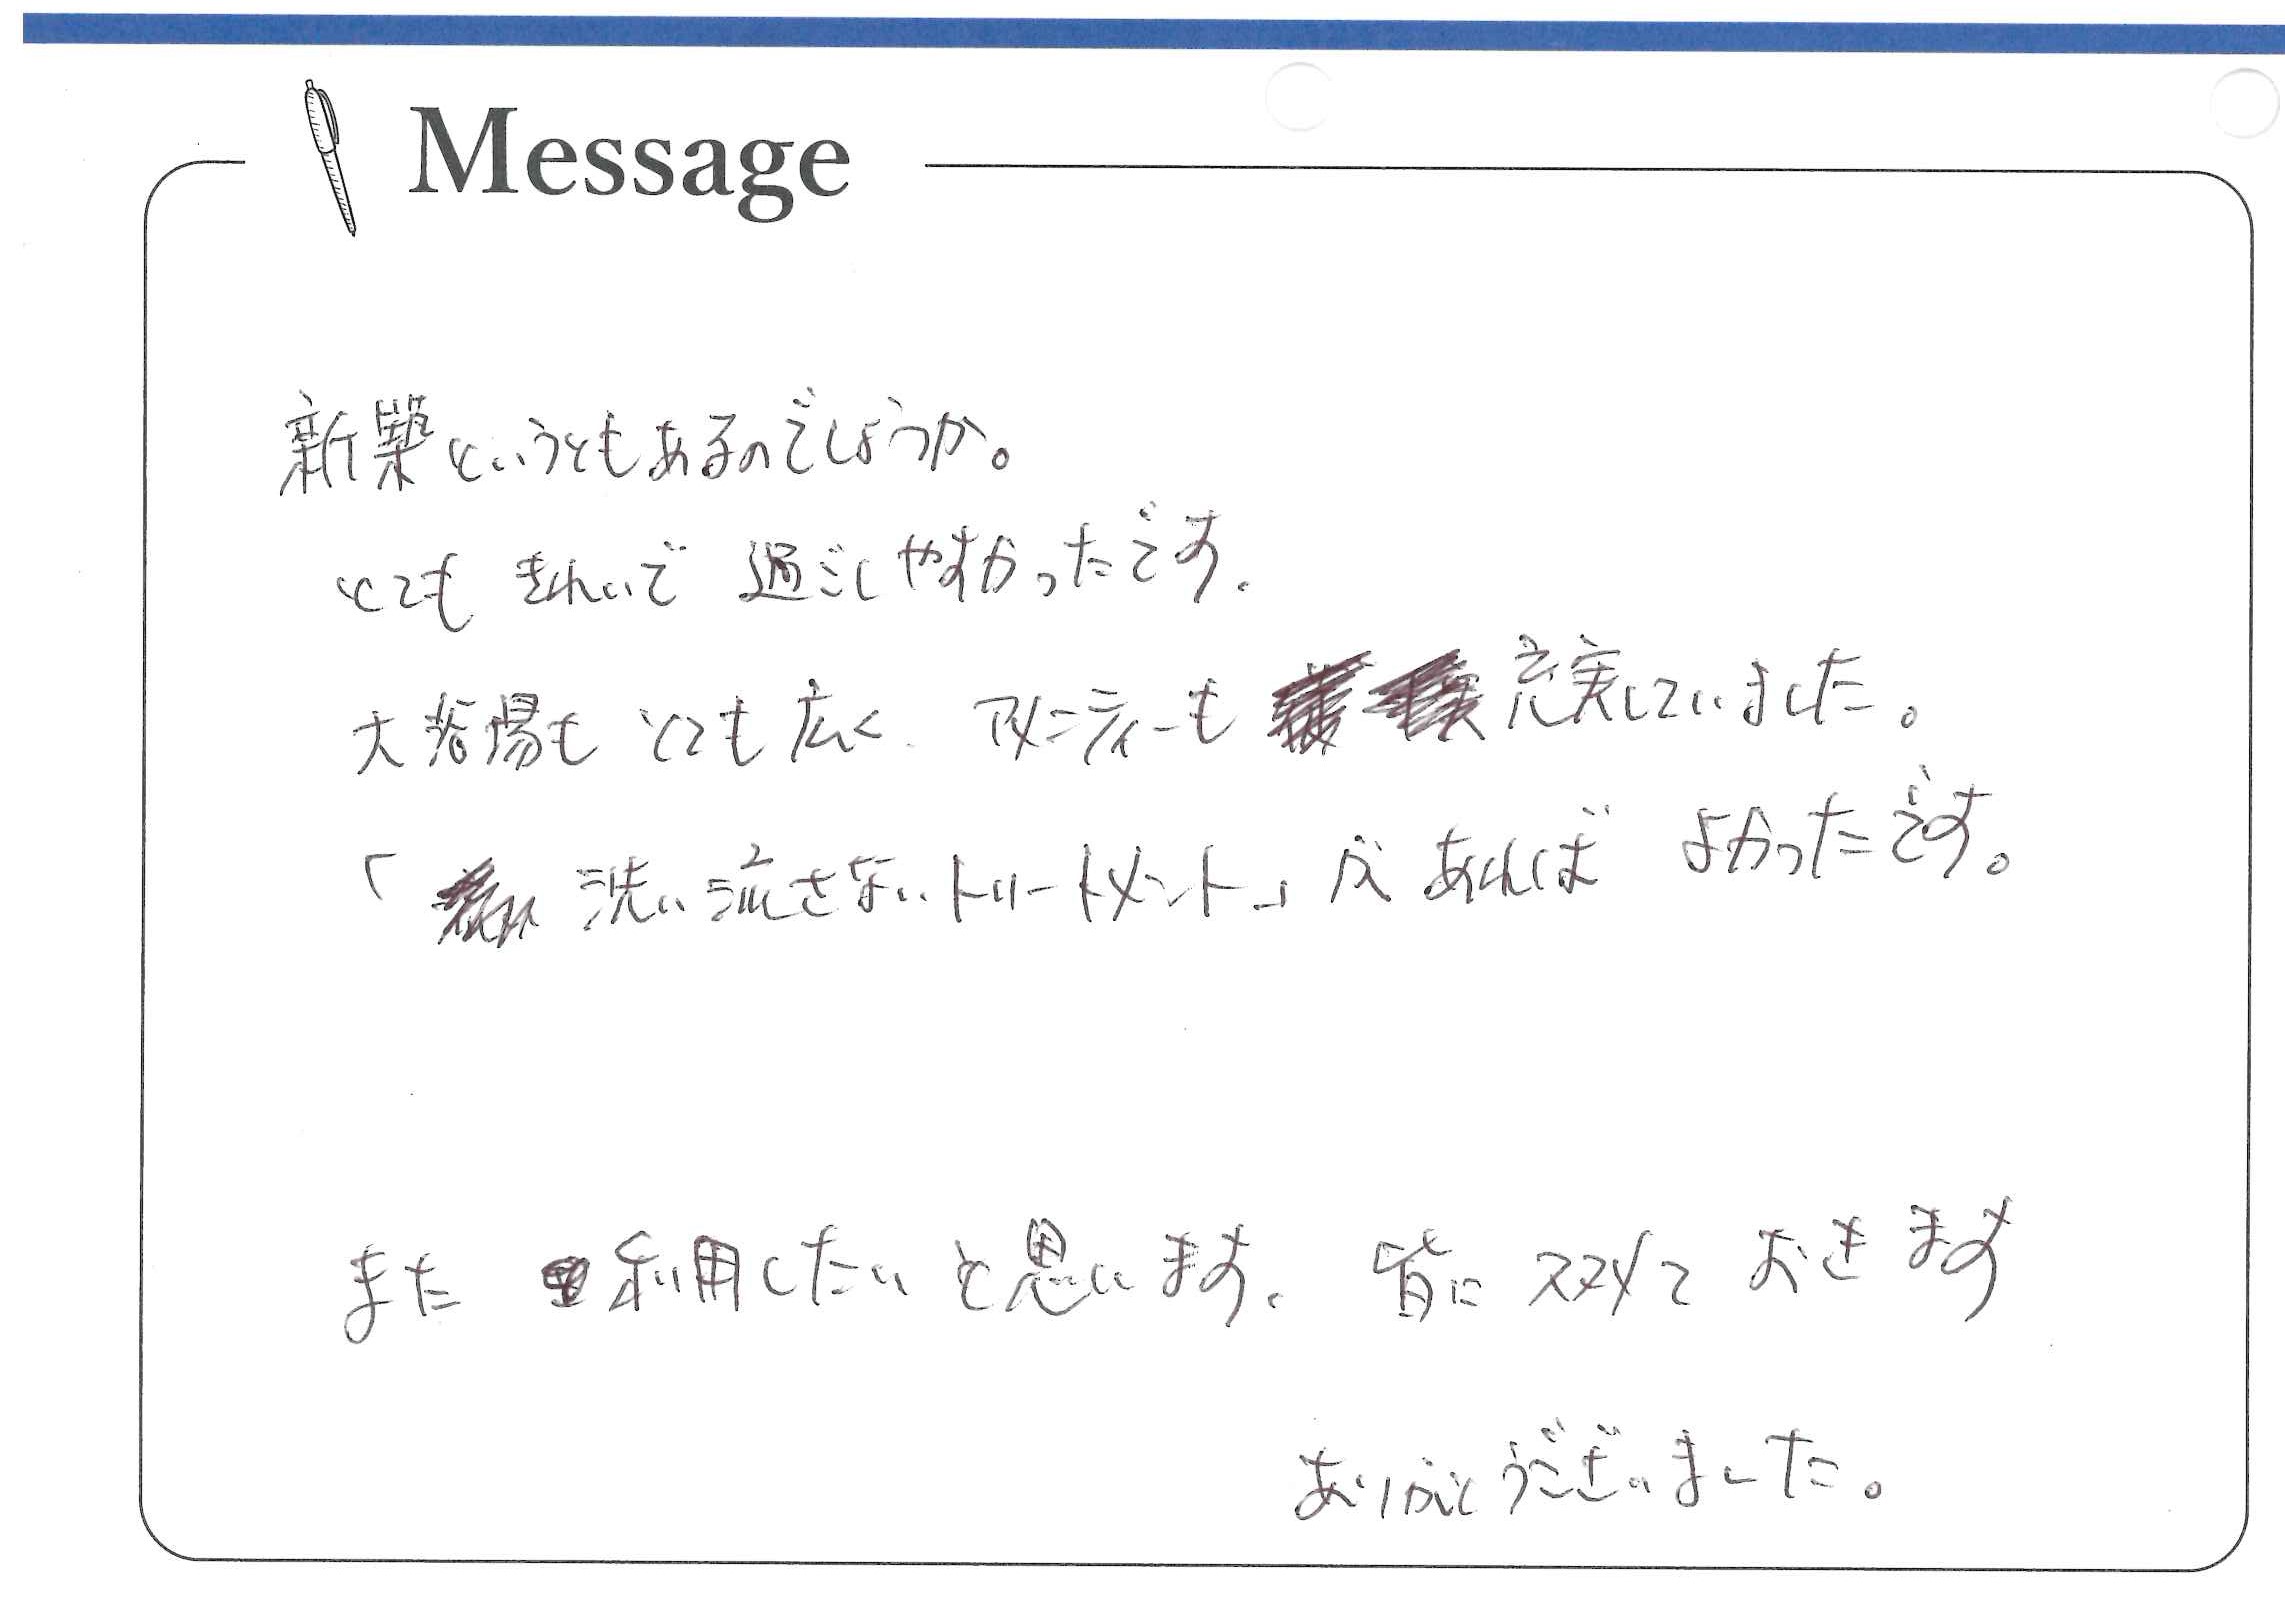 Message
新築というともあるのでしょうか。
とても きれいで 過ごしやすかったです。
大浴場も とても 広く、アメニティーも 充実していました。
「洗い流さないトリートメント」が あれば よかったです。
また 利用したいと思います。 皆に ススメて おきます
ありがとうございました。